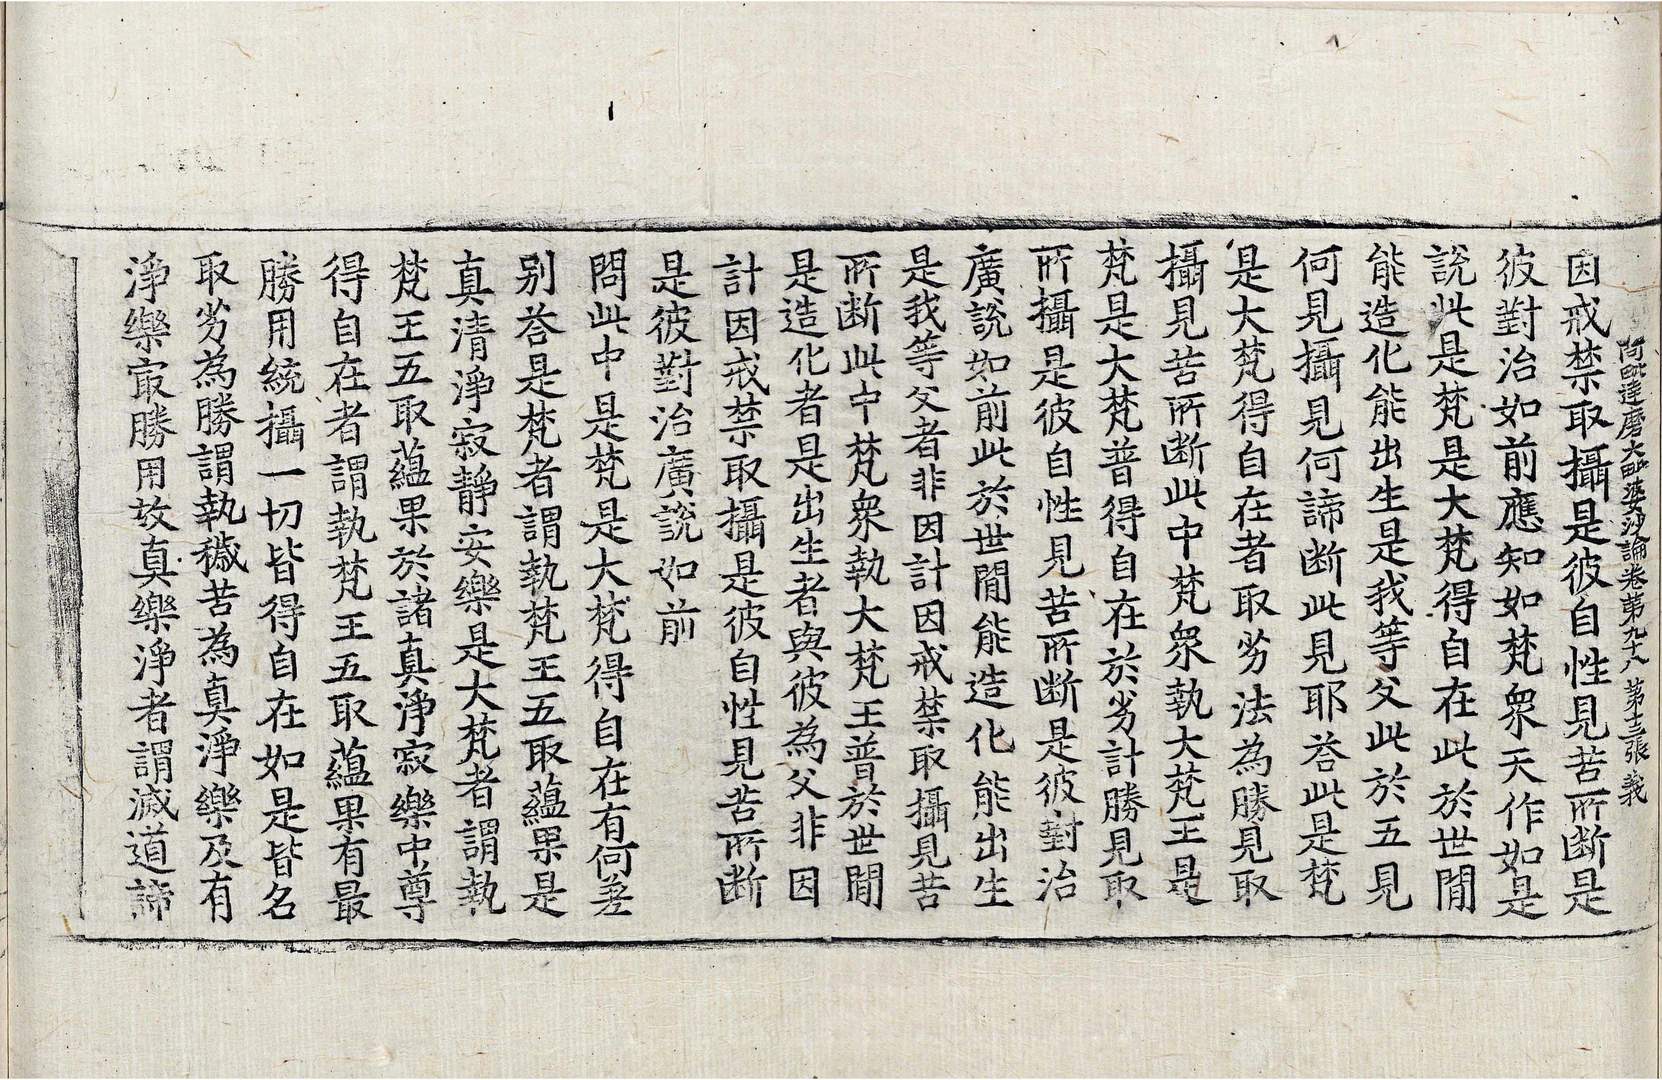 阿毗達磨大毗婆沙論卷第九十八 第十三張 義
因戒禁取攝是彼自性見苦所断是
彼對治如前應知如梵衆天作如是
說此是梵是大梵得自在此於世間
能造化能出生是我等父此於五見
何見攝見何諦断此見耶荅此是梵
是大梵得自在者取劣法為勝見取
攝見苦所断此中梵衆執大梵王是
梵是大梵普得自在於劣計勝見取
所攝是彼自性見苦所断是彼對治
廣說如前此於世間能造化能出生
是我等父者非因計因戒禁取攝見苦
所断此中梵衆執大梵王普於世間
是造化者是出生者與彼為父非因
計因戒禁取攝是彼自性見苦所断
是彼對治廣說如前
問此中是梵是大梵得自在有何差
别荅是梵者謂執梵王五取蘊果是
真清淨寂靜安樂是大梵者謂執
梵王五取蘊果於諸真淨寂樂中尊
得自在者謂執梵王五取蘊果有最
勝用統攝一切皆得自在如是皆名
取劣為勝謂執穢苦為真淨樂及有
淨樂㝡勝用故真樂淨者謂滅道諦